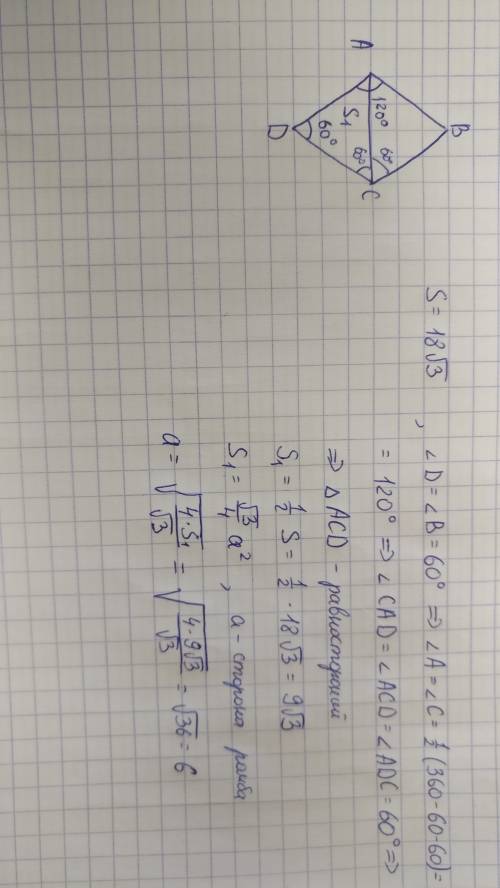 B
A
120°
60°
60°
C
S₁
60°
D
S = 18√3 , ∠D = ∠B = 60° ⇒ ∠A = ∠C = 1/2 (360 - 60 - 60) =
= 120° ⇒ ∠CAD = ∠ACD = ∠ADC = 60° ⇒
⇒ △ACD - равносторонний
S₁ = 1/2 S = 1/2 · 18√3 = 9√3
S₁ = √3/4 a² , a - сторона ромба
a = √(4·S₁/√3) = √(4·9√3/√3) = √36 = 6